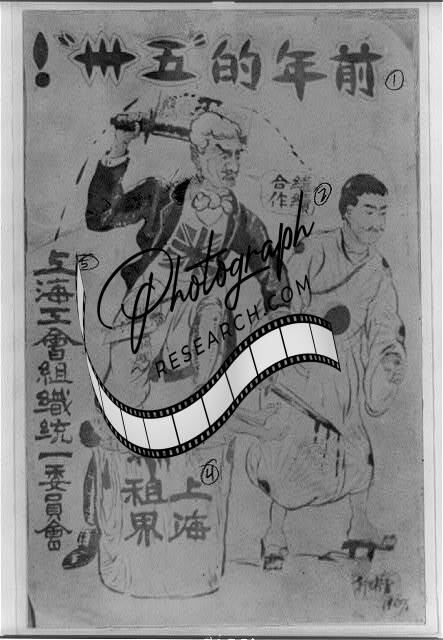 前年的“五卅”！
①
②
繼續
合作
Photograph
RESEARCH.COM
④
上海
租界
⑤
上海工會組織統一委員會